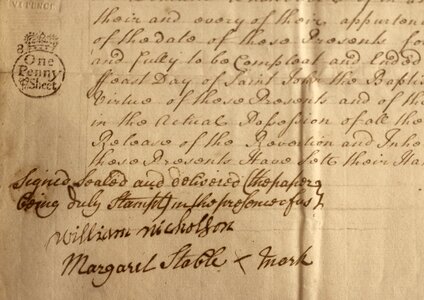 VI PENCE
their and every of their appurten
of the date of these Presents fo
and fully to be Compleat and Ended
ffeast Day of Saint John the Baptis
Virtue of these Presents and of th
in the Actual Possession of all the
Release of the Revertion and Inhe
these Presents Have Sett their Han
8
One
Penny
Sheet
Signed Sealed and delivered (the paper
being duly Stampt) in the presence of us
William Nicholson
Margaret Stable × Merk